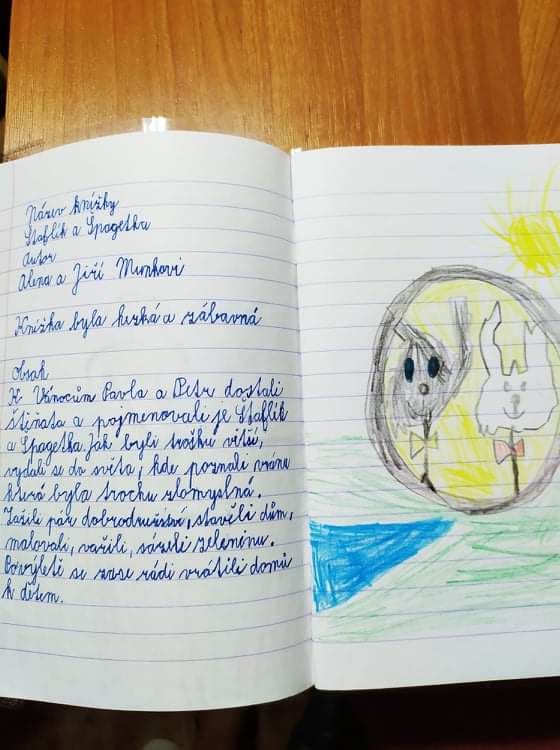 Název knížky
Štaflík a Špagetka
Autor
Alena a Jiří Munkovi
Knížka byla hezká a zábavná
Obsah
K Vánocům Pavla a Petr dostali
štěňata a pojmenovali je Štaflík
a Špagetka. Jak byli trošku větší,
vydali se do světa, kde poznali vránu
která byla trochu zlomyslná.
Zažili pár dobrodružství, stavěli dům,
malovali, vařili, sázeli zeleninu.
Po výletě se zase rádi vrátili domů
k dětem.